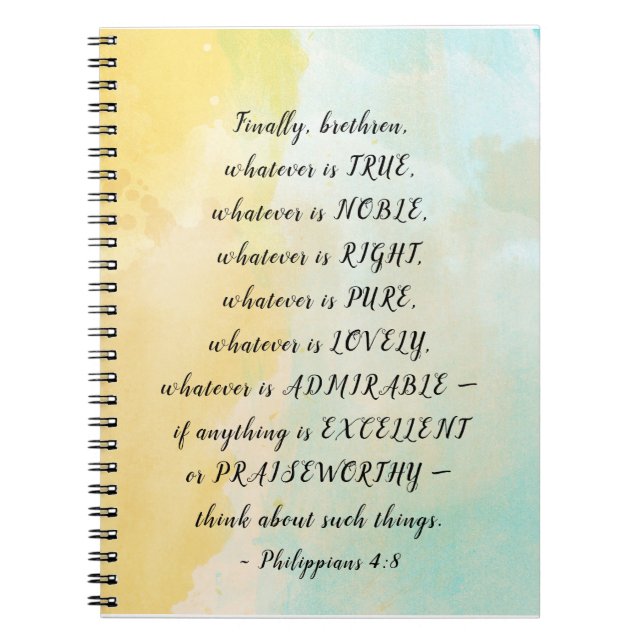 Finally, brethren,
whatever is TRUE,
whatever is NOBLE,
whatever is RIGHT,
whatever is PURE,
whatever is LOVELY,
whatever is ADMIRABLE –
if anything is EXCELLENT
or PRAISEWORTHY –
think about such things.
~ Philippians 4:8